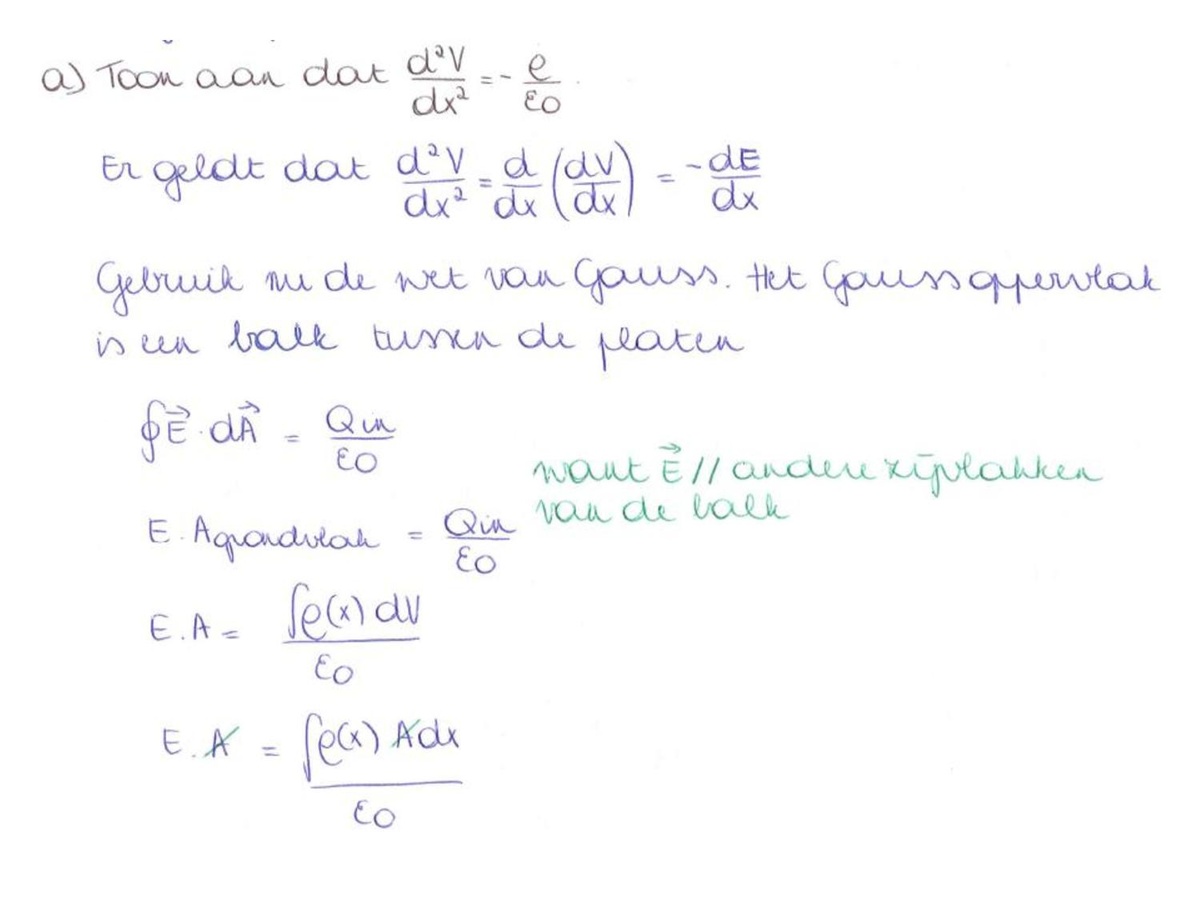 a) Toon aan dat d²V/dx² = - ρ/ε0
Er geldt dat d²V/dx² = d/dx (dV/dx) = - dE/dx
Gebruik nu de wet van Gauss. Het Gaussoppervlak
is een balk tussen de platen
∮E⃗ · dA⃗ = Qin/ε0
want E⃗ // andere zijvlakken
van de balk
E · Agrondvlak = Qin/ε0
E . A = ∫ρ(x) dV/ε0
E . A = ∫ρ(x) A dx/ε0